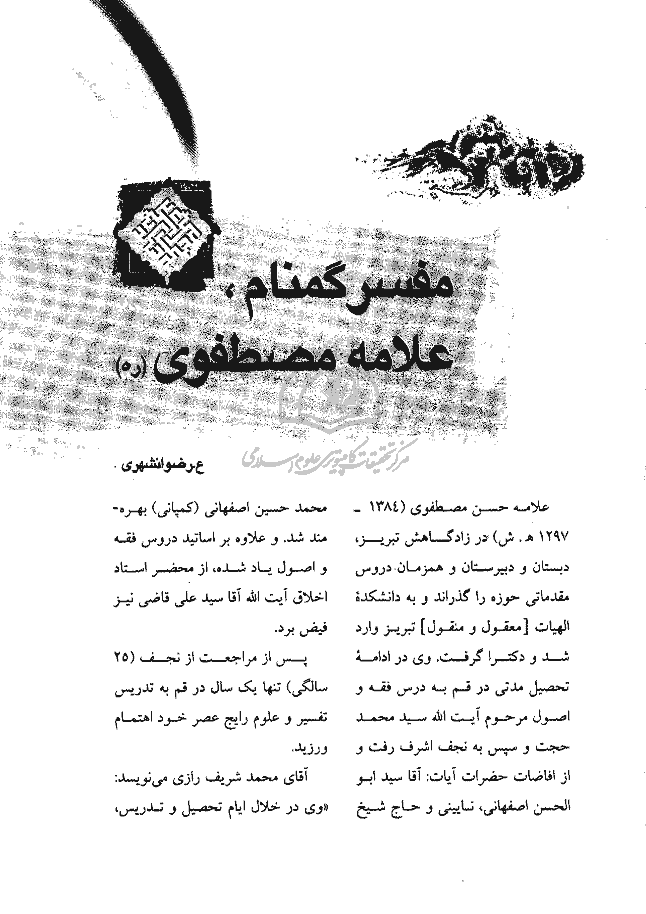 مفسر گمنام ،
علامه مصطفوی (ره)
مرکز تحقیقات کامپیوتری علوم اسلامی
ع.رضوانشهری .
علامه حسن مصطفوی (١٣٨٤ ـ
١٢٩٧ هـ . ش) در زادگاهش تبریز،
دبستان و دبیرستان و همزمان دروس
مقدماتی حوزه را گذراند و به دانشکدۀ
الهیات [معقول و منقول] تبریز وارد
شد و دکترا گرفت. وی در ادامۀ
تحصیل مدتی در قم به درس فقه و
اصول مرحوم آیت الله سید محمد
حجت و سپس به نجف اشرف رفت و
از افاضات حضرات آیات: آقا سید ابو
الحسن اصفهانی، نایینی و حاج شیخ
محمد حسین اصفهانی (کمپانی) بهره-
مند شد. و علاوه بر اساتید دروس فقه
و اصول یاد شده، از محضر استاد
اخلاق آیت الله آقا سید علی قاضی نیز
فیض برد.
پس از مراجعت از نجف (٢٥
سالگی) تنها یک سال در قم به تدریس
تفسیر و علوم رایج عصر خود اهتمام
ورزید.
آقای محمد شریف رازی می‌نویسد:
«وی در خلال ایام تحصیل و تدریس،